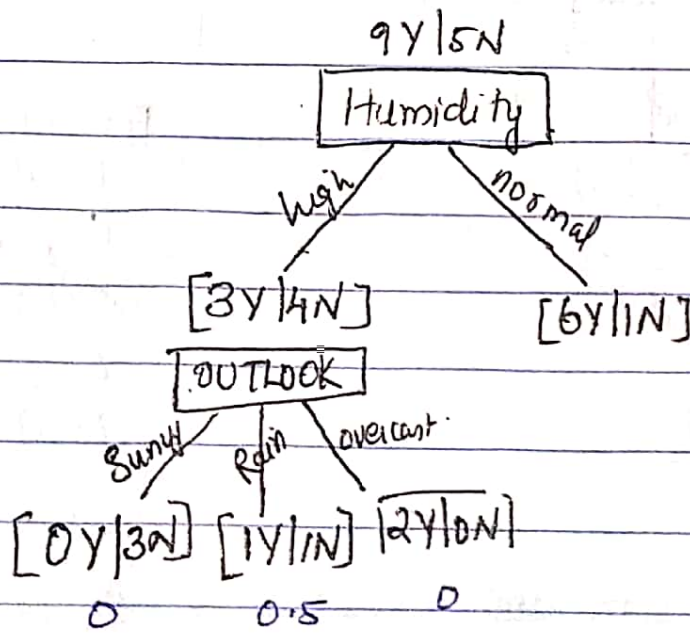 9Y|5N
Humidity
high normal
[3Y|4N] [6Y|1N]
OUTLOOK
Sunny Rain overcast.
[0Y|3N] [1Y|1N] [2Y|0N]
0 0.5 0